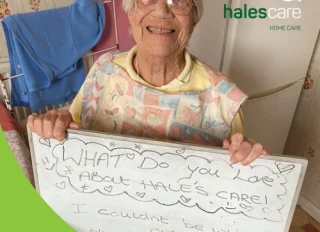 halescare
HOME CARE
WHAT Do you Love
ABOUT HALE'S CARE!
I couldn't be